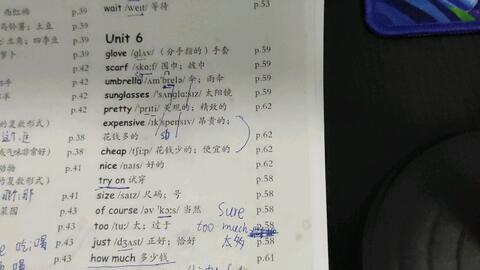 西红柿 p.39
wait /weɪt/ 等待 p.53
土豆 p.39
豆角；四季豆 p.39
萝卜 p.39
p.42
p.42
p.42
p.42
的复数形式）
这个;这 p.38
或气味非常好） p.38
动物 p.41
的复数形式）
p.41
菜园 p.41
p.43
p.43
p.43
Unit 6
glove /glʌv/（分手指的）手套 p.59
scarf /skɑːf/ 围巾；披巾 p.59
umbrella /ʌmˈbrelə/ 伞；雨伞 p.59
sunglasses /ˈsʌnglɑːsɪz/ 太阳镜 p.59
pretty /ˈprɪti/ 美观的；精致的 p.62
expensive /ɪkˈspensɪv/ 昂贵的；
花钱多的 sb p.62
cheap /tʃiːp/ 花钱少的；便宜的 p.62
nice /naɪs/ 好的 p.62
try on 试穿 p.58
size /saɪz/ 尺码；号 p.58
of course /əv ˈkɔːs/ 当然 Sure p.58
too /tuː/ 太；过于 too much p.58
just /dʒʌst/ 正好；恰好 太多 p.58
how much 多少钱 p.61
吃;喝
喝